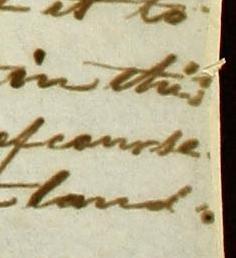 it to
in this
of course.
land.